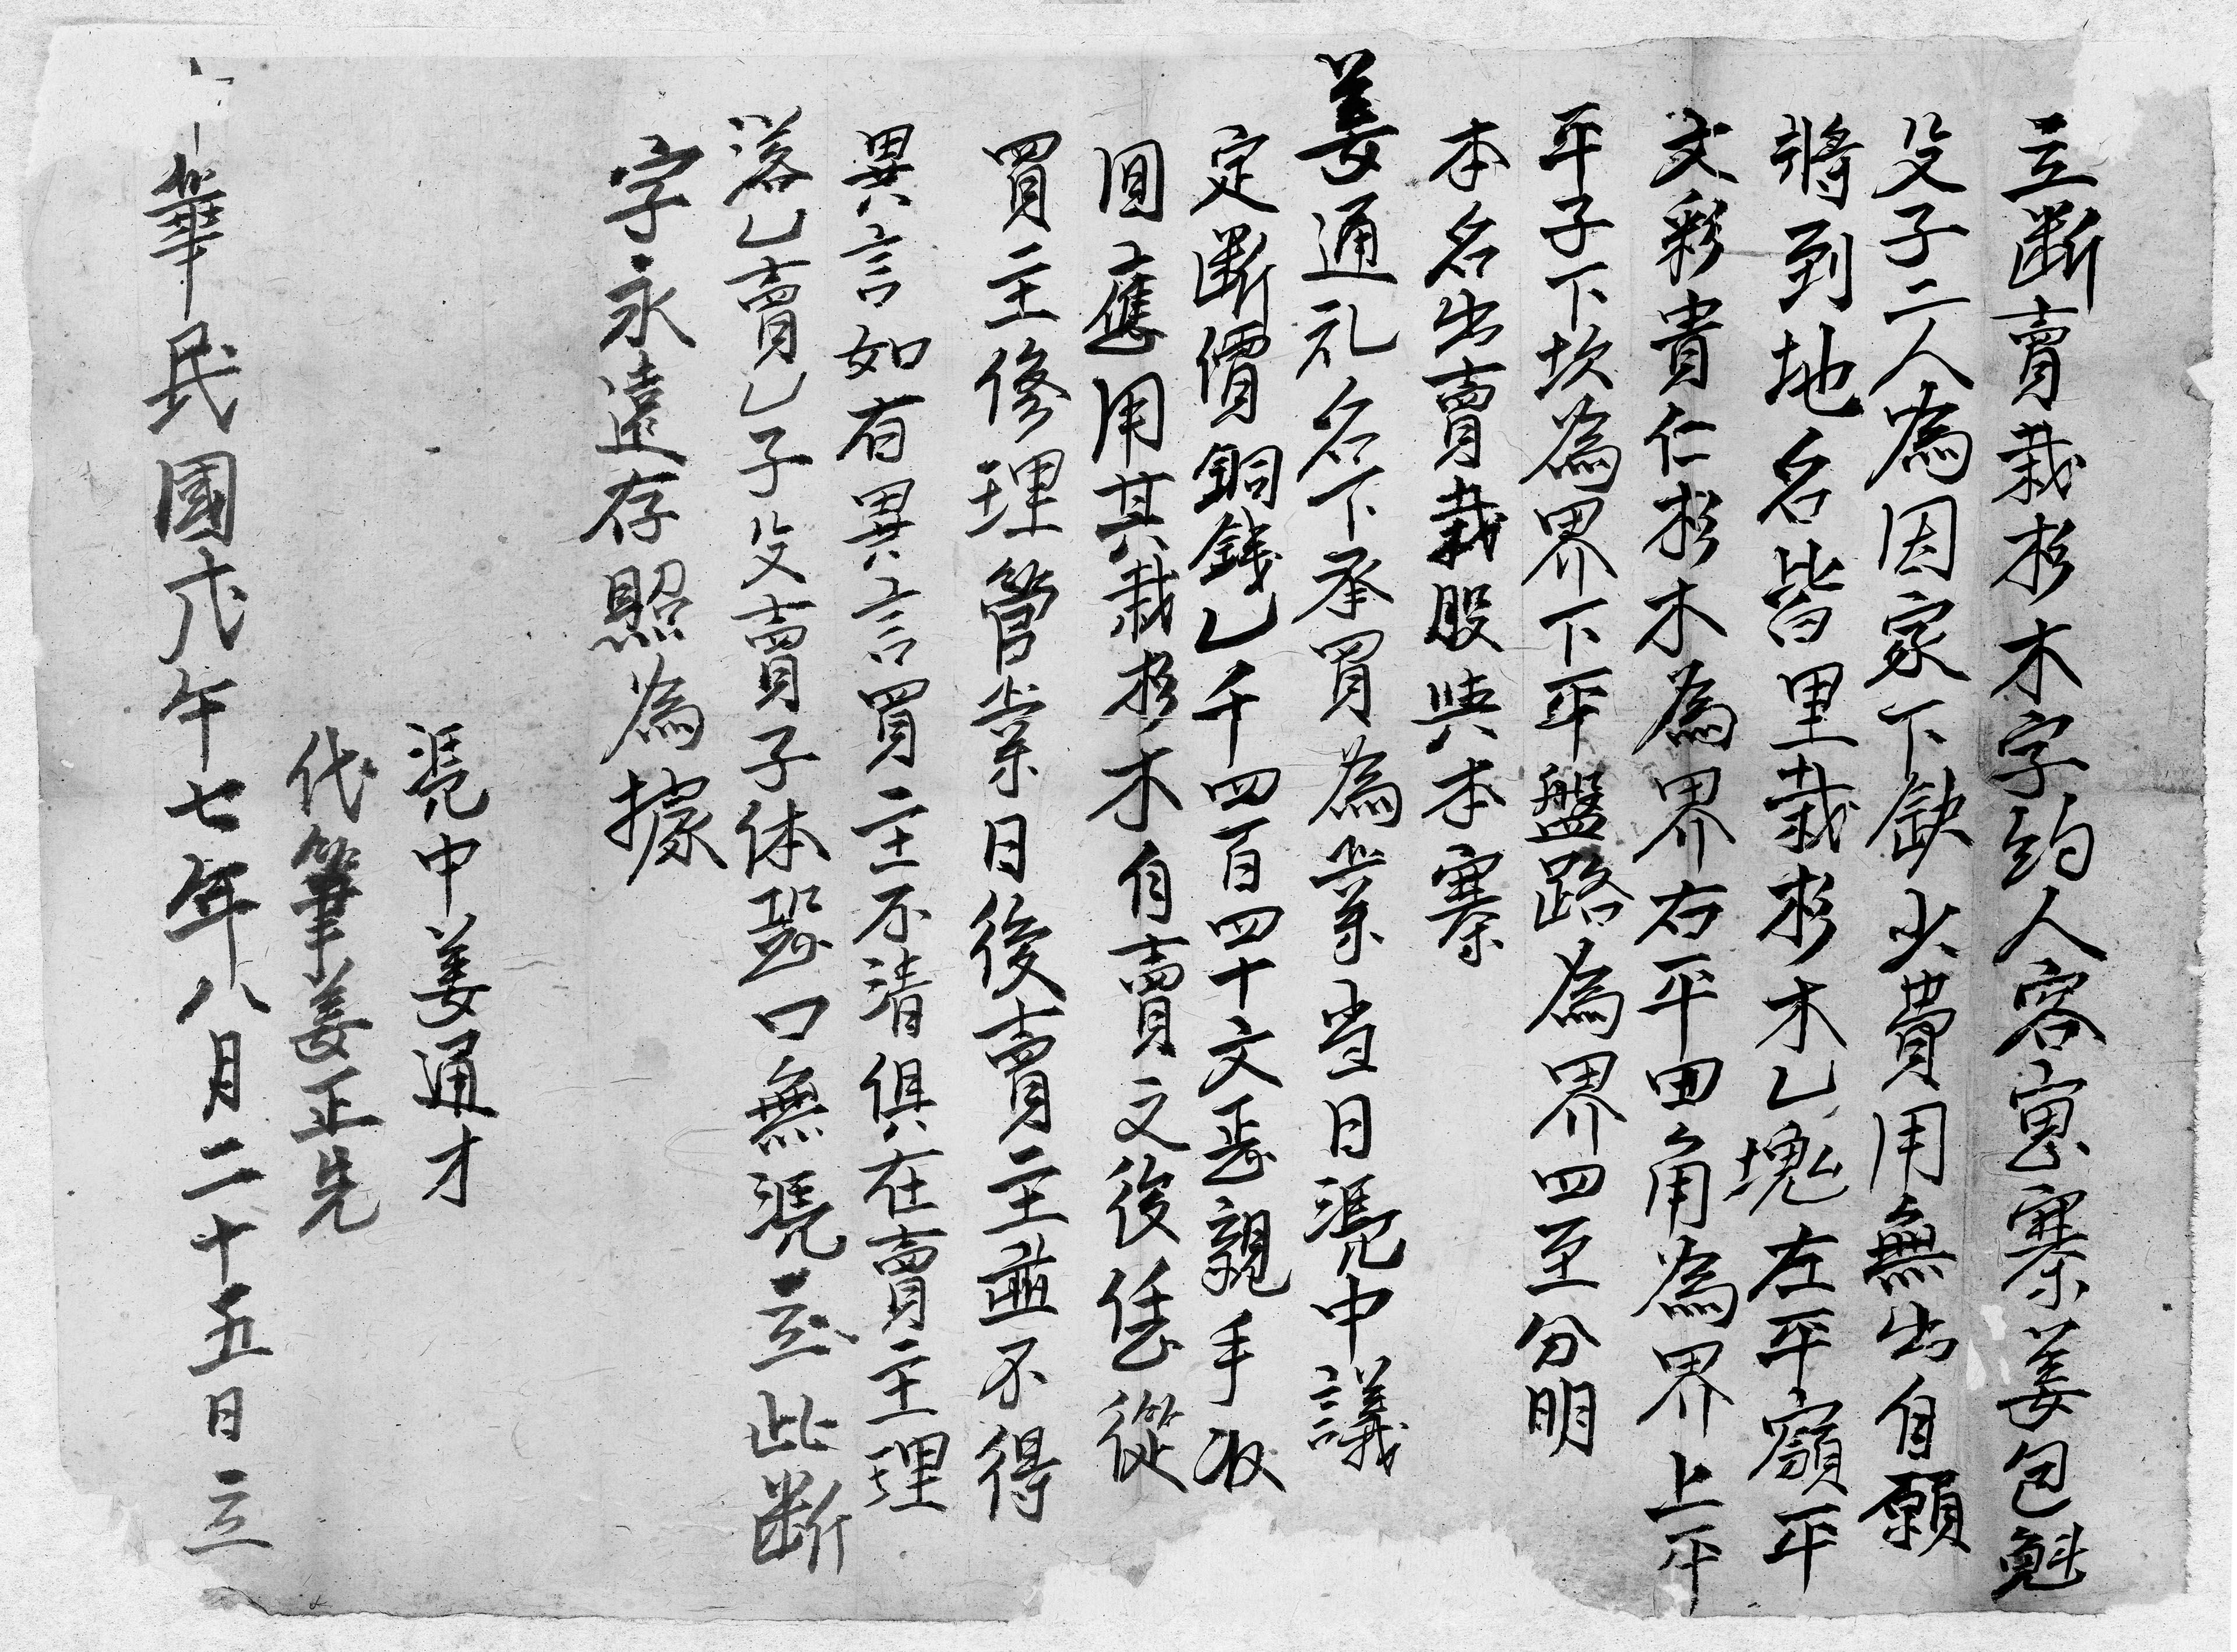 立斷賣栽杉木字約人容寓寨姜包魁
父子二人為因家下缺少費用無出自願
將到地名皆里栽杉木乙塊左平嶺平
文彩貴仁杉木為界右平田角為界上平
平子下坎為界下平盤路為界四至分明
本名出賣栽股與本寨
姜通礼名下承買為業当日憑中議
定斷價銅錢乙千四百四十文恁親手收
囬應用其栽杉木自賣之後任從
買主修理管業日後賣主並不得
異言如有異言買主不清俱在賣主理
落乙賣乙子父賣子休恐口無憑立此斷
字永遠存照為據
憑中姜通才
代筆姜正先
中華民國戊午七年八月二十五日立